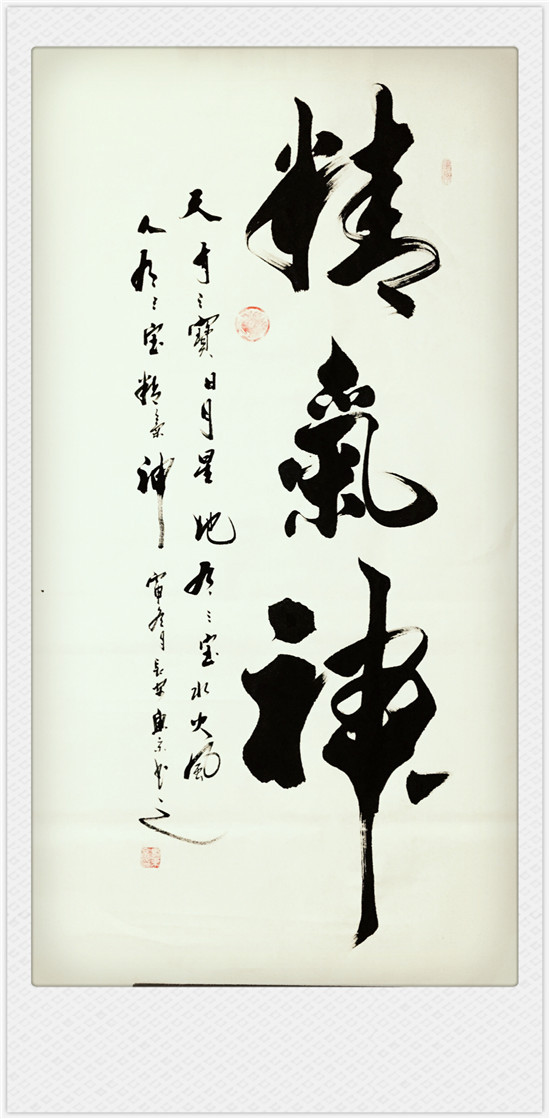 精氣神
天有三寶日月星地有三宝水火風
人有三宝精氣神
寅冬月
书之